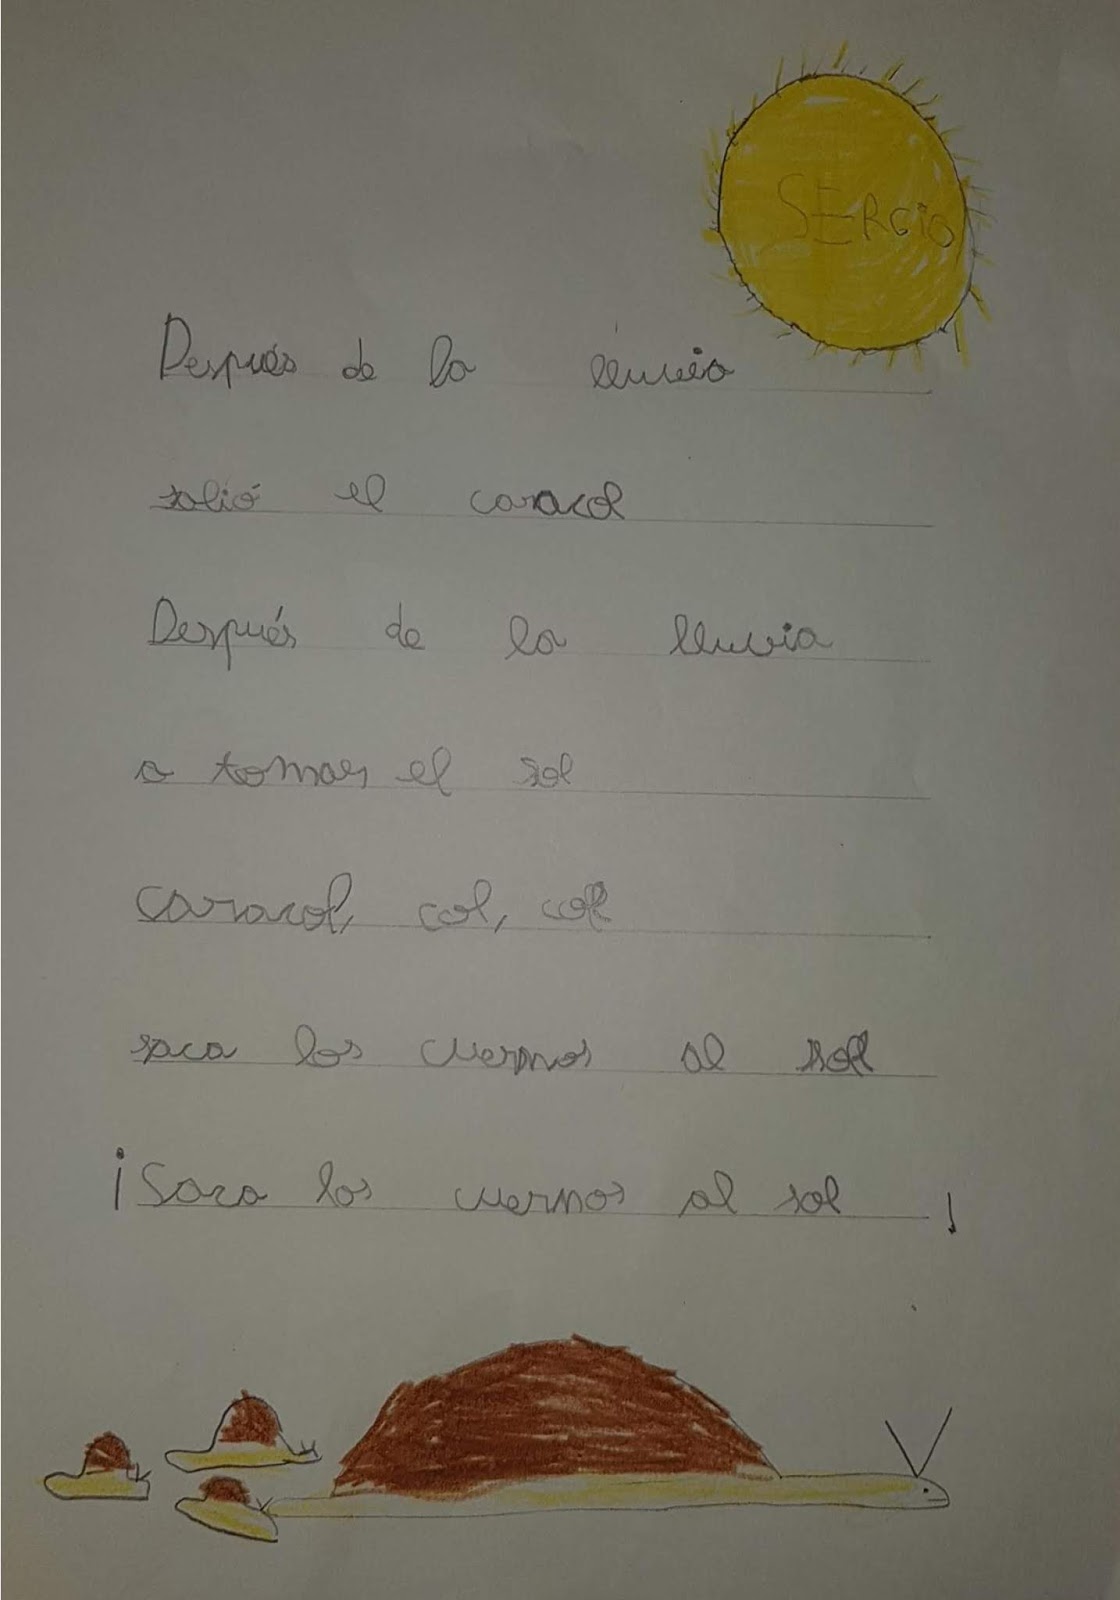 SERGIO
Después de la lluvia
salió el caracol
Después de la lluvia
a tomar el sol
caracol, col, col
saca los cuernos al sol
¡Saca los cuernos al sol!